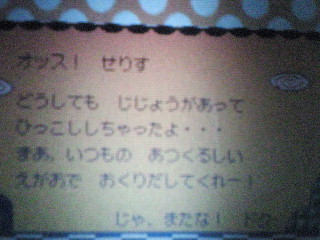 オッス！ せりす
どうしても じじょうがあって
ひっこししちゃったよ・・・
まあ、いつもの あつくるしい
えがおで おくりだしてくれー！
じゃ、またな！